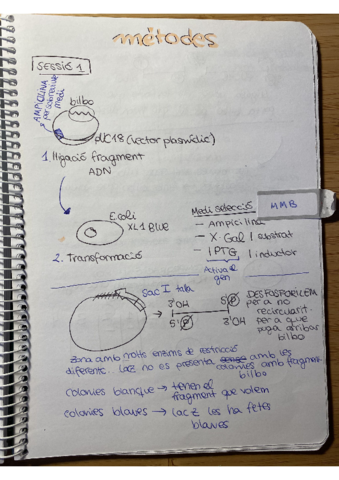 mètodes
SESSIÓ 1
AMPICILINA
medi
bilbo
pUC18 (vector plasmídic)
1. lligació fragment
ADN
E.coli
XL1 Blue
2. Transformació
Medi selecció
MMB
- Ampicilina
- X-Gal / substrat
- IPTG / inductor
Activa el
gen
Sac I talla
3'OH
5'P
5'P
3'OH
DESFOSFORILEM
per a no
recircularit.
per a que
puga arribar
bilbo
zona amb molts enzims de restricció
diferents.. lacZ no es presenta amb les
colonies amb fragment
bilbo
colonies blanques → tenen el
fragment que volem
colonies blaves → lacZ les ha fetes
blaves